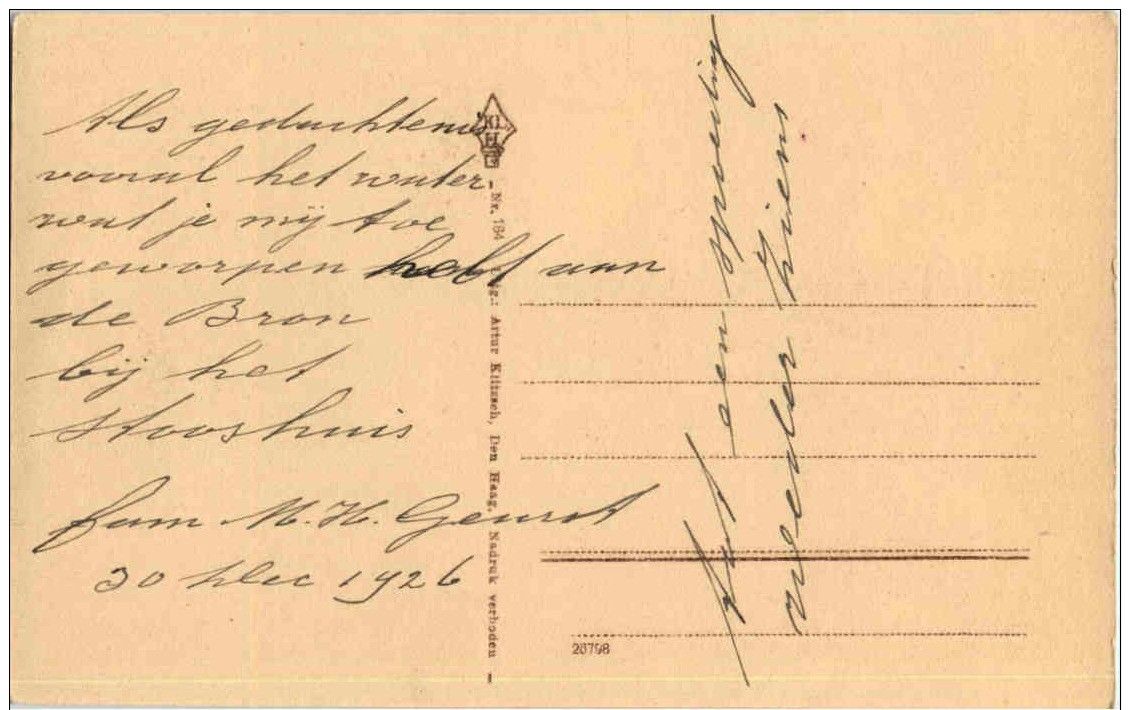 Als gedachtenis
vooral het water
wat je mij toe
geworpen hebt aan
de Bron
bij het
Stooshuis
fam M. H. Geurst
30 Dec 1926
KL.
H
- Nr. 184 Uitg.: Artur Klitzsch, Den Haag. Nadruk verboden -
Tot een spoedig
weder Ziens
26798